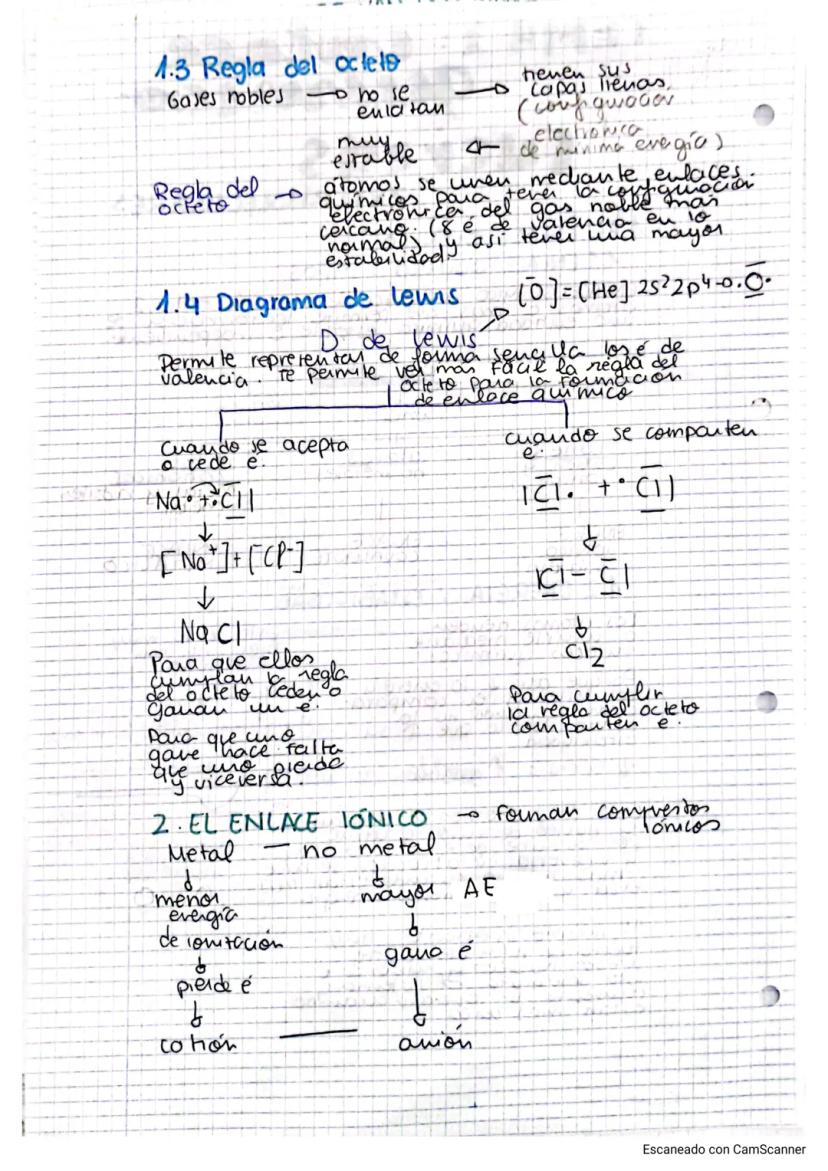 1.3 Regla del octeto
Gases nobles → no se enlazan → tienen sus capas llenas.
(configuración electrónica de mínima energía)
muy estable ←
Regla del octeto → átomos se unen mediante enlaces
químicos para tener la configuración
electrónica del gas noble más
cercano. (8 é de valencia en lo
normal) y así tener una mayor
estabilidad.
1.4 Diagrama de lewis
[O]=[He] 2s² 2p⁴
D de lewis
Permite representar de forma sencilla los é de
valencia. Te permite ver más fácil la regla del
octeto para la formación
de enlace químico
Cuando se acepta
o cede é.
Na· + :Cl|
↓
[Na⁺]+[Cl⁻]
↓
NaCl
Para que ellos
cumplan la regla
del octeto ceden o
ganan un é.
Para que uno
gane hace falta
que uno pierda
y viceversa.
cuando se comparten
é.
|Cl· + ·Cl|
↓
|Cl - Cl|
↓
Cl₂
Para cumplir
la regla del octeto
comparten é.
2. EL ENLACE IÓNICO → forman compuestos
iónicos
Metal — no metal
↓
menor
energía
de ionización
↓
pierde é
↓
catión
↓
mayor AE
↓
gana é
↓
anión
Escaneado con CamScanner